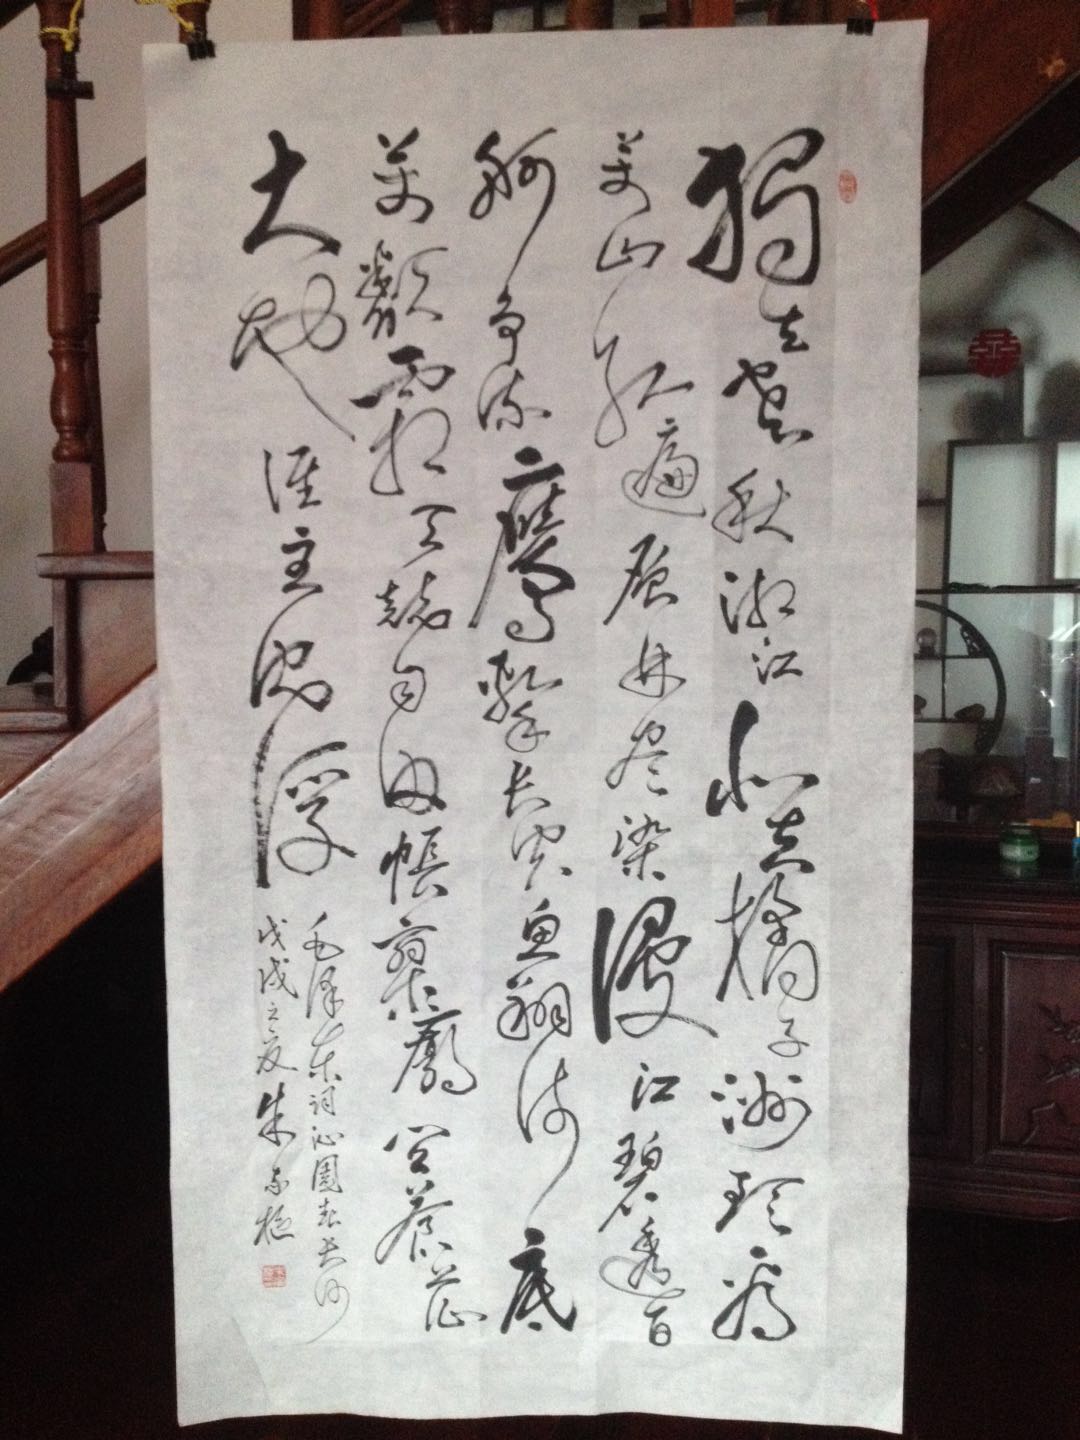 獨立寒秋湘江北去橘子洲頭看
萬山紅遍層林盡染漫江碧透百
舸爭流鷹擊長空魚翔淺底
萬類霜天競自由悵寥廓問蒼茫
大地誰主沉浮
毛澤東詞沁園春長沙
戊戌之夏朱